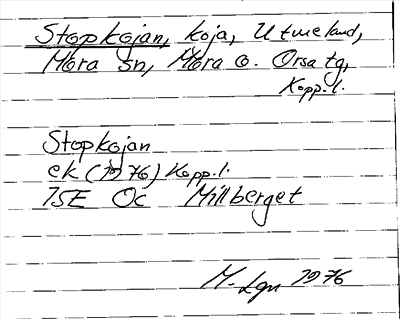 Stopkojan, koja, Utmeland,
Mora sn, Mora o. Orsa tg,
Kopp. l.
Stopkojan
ek (1976) Kopp. l.
15E Oc Millberget
M. Lgn 1976